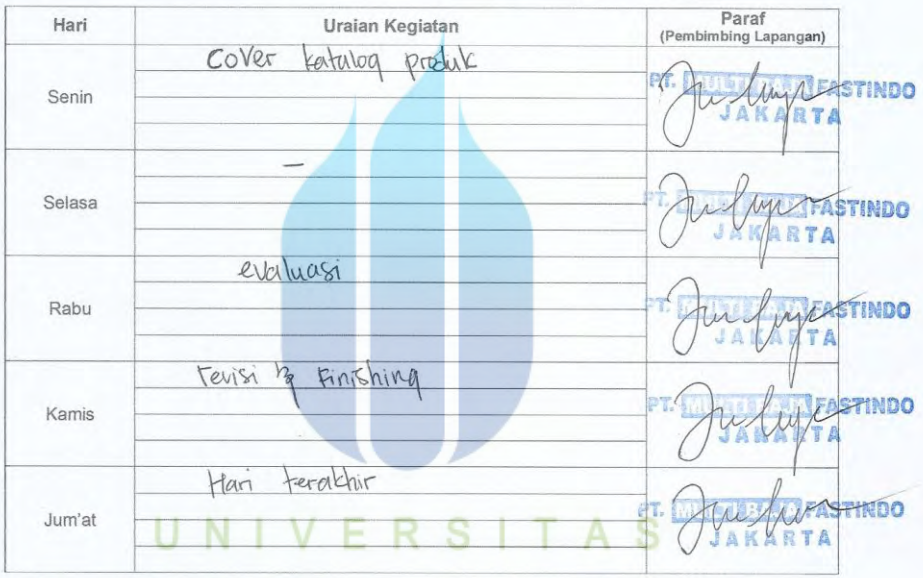 Hari Uraian Kegiatan Paraf
(Pembimbing Lapangan)
Senin Cover katalog produk PT. MULTI BAJA FASTINDO
JAKARTA
Selasa — PT. MULTI BAJA FASTINDO
JAKARTA
Rabu evaluasi PT. MULTI BAJA FASTINDO
JAKARTA
Kamis revisi & Finishing PT. MULTI BAJA FASTINDO
JAKARTA
Jum'at Hari terakhir PT. MULTI BAJA FASTINDO
JAKARTA
UNIVERSITAS